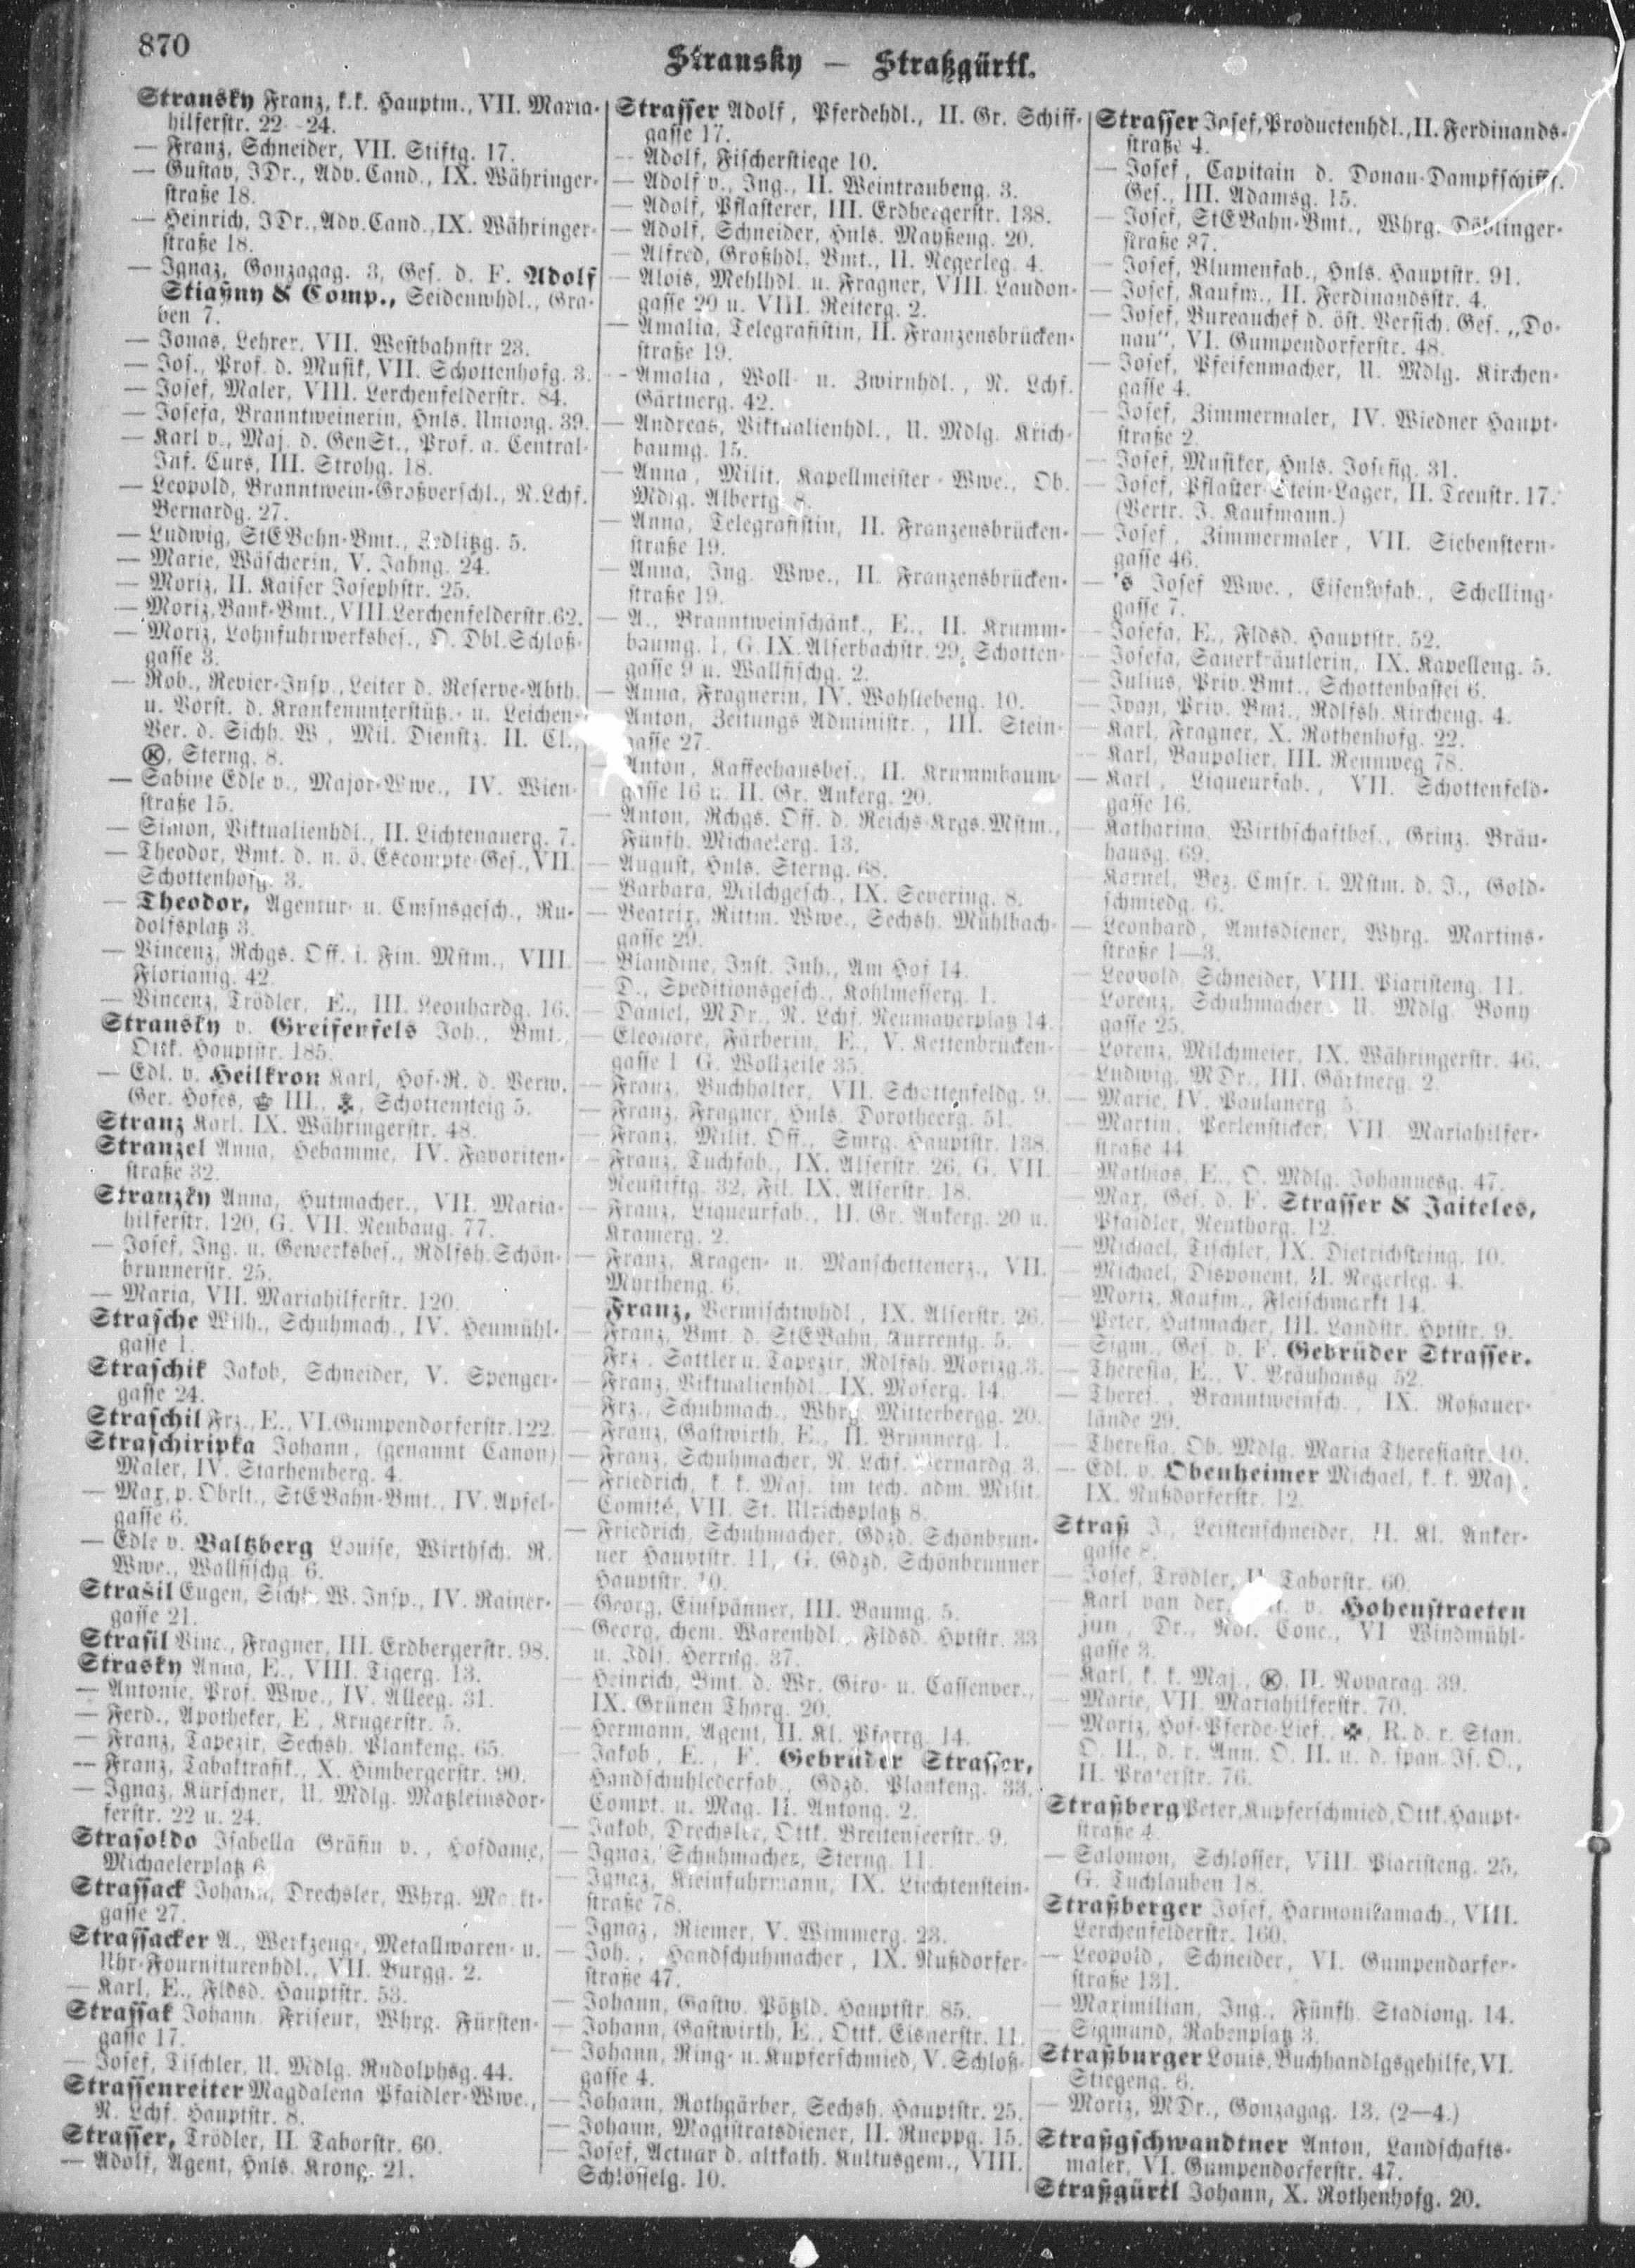 870
Stransky — Straßgürtl.
Stransky Franz, k.k. Hauptm., VII. Maria-
hilferstr. 22—24.
— Franz, Schneider, VII. Stiftg. 17.
— Gustav, JDr., Adv. Cand., IX. Währinger-
straße 18.
— Heinrich, JDr., Adv. Cand., IX. Währinger-
straße 18.
— Ignaz, Gonzagag. 3, Ges. d. F. Adolf
Stiaßny & Comp., Seidenwhdl., Gra-
ben 7.
— Jonas, Lehrer, VII. Westbahnstr 23.
— Jos., Prof. d. Musik, VII. Schottenhofg. 3.
— Josef, Maler, VIII. Lerchenfelderstr. 84.
— Josefa, Branntweinerin, Hnls. Uniong. 39.
— Karl v., Maj. d. GenSt., Prof. a. Central-
Inf. Curs, III. Strohg. 18.
— Leopold, Branntwein-Großverschl., N. Lchf.
Bernardg. 27.
— Ludwig, StEBahn-Bmt., Sedlitzg. 5.
— Marie, Wäscherin, V. Jahng. 24.
— Moriz, II. Kaiser Josephstr. 25.
— Moriz, Bank-Bmt., VIII. Lerchenfelderstr. 62.
— Moriz, Lohnfuhrwerksbes., O. Dbl. Schloß-
gasse 3.
— Rob., Revier-Insp., Leiter d. Reserve-Abth.
u. Vorst. d. Krankenunterstütz.- u. Leichen-
Ver. d. Sichh. W., Mil. Dienstz. II. Cl.,
Ⓚ, Sterng. 8.
— Sabine Edle v., Major-Wwe., IV. Wien-
straße 15.
— Simon, Viktualienhdl., II. Lichtenauerg. 7.
— Theodor, Bmt. d. n. ö. Escompte-Ges., VII.
Schottenhofg. 3.
— Theodor, Agentur- u. Cmsnsgesch., Ru-
dolfsplatz 3.
— Vincenz, Rchgs. Off. i. Fin. Mstm., VIII.
Florianig. 42.
— Vincenz, Trödler, E., III. Leonhardg. 16.
Stransky v. Greifenfels Joh., Bmt.,
Ottk. Hauptstr. 185.
— Edl. v. Heilkron Karl, Hof-R. d. Verw.
Ger. Hofes, III., Schottensteig 5.
Stranz Karl. IX. Währingerstr. 48.
Stranzel Anna, Hebamme, IV. Favoriten-
straße 32.
Stranzky Anna, Hutmacher., VII. Maria-
hilferstr. 120, G. VII. Neubaug. 77.
— Josef, Ing. u. Gewerksbes., Rdlfsh. Schön-
brunnerstr. 25.
— Maria, VII. Mariahilferstr. 120.
Strasche Wilh., Schuhmach., IV. Heumühl-
gasse 1.
Straschik Jakob, Schneider, V. Spenger-
gasse 24.
Straschil Frz., E., VI. Gumpendorferstr. 122.
Straschiripka Johann, (genannt Canon)
Maler, IV. Starhemberg. 4.
— Max, p. Obrlt., StEBahn-Bmt., IV. Apfel-
gasse 6.
— Edle v. Baltzberg Louise, Wirthsch. R.
Wwe., Wallfischg. 6.
Strašil Eugen, Sichh. W. Insp., IV. Rainer-
gasse 21.
Strasil Vinc., Fragner, III. Erdbergerstr. 98.
Strasky Anna, E., VIII. Tigerg. 13.
— Antonie, Prof. Wwe., IV. Alleeg. 31.
— Ferd., Apotheker, E., Krugerstr. 5.
— Franz, Tapezir, Sechsh. Plankeng. 65.
— Franz, Tabaktrafik., X. Himbergerstr. 90.
— Ignaz, Kürschner, U. Mdlg. Matzleinsdor-
ferstr. 22 u. 24.
Strasoldo Isabella Gräfin v., Hofdame,
Michaelerplatz 6
Strassack Johann, Drechsler, Whrg. Markt-
gasse 27.
Strassacker A., Werkzeug-, Metallwaren- u.
Uhr-Fourniturenhdl., VII. Burgg. 2.
— Karl, E., Fldsd. Hauptstr. 53.
Strassak Johann Friseur, Whrg. Fürsten-
gasse 17.
— Josef, Tischler, U. Mdlg. Rudolphsg. 44.
Strassenreiter Magdalena Pfaidler-Wwe.,
N. Lchf. Hauptstr. 8.
Strasser, Trödler, II. Taborstr. 60.
— Adolf, Agent, Hnls. Krong. 21.
Strasser Adolf, Pferdehdl., II. Gr. Schiff-
gasse 17.
— Adolf, Fischerstiege 10.
— Adolf v., Ing., II. Weintraubeng. 3.
— Adolf, Pflasterer, III. Erdbergerstr. 138.
— Adolf, Schneider, Hnls. Mayßeng. 20.
— Alfred, Großhdl. Bmt., II. Negerleg. 4.
— Alois, Mehlhdl. u. Fragner, VIII. Laudon-
gasse 29 u. VIII. Reiterg. 2.
— Amalia, Telegrafistin, II. Franzensbrücken-
straße 19.
— Amalia, Woll- u. Zwirnhdl., N. Lchf.
Gärtnerg. 42.
— Andreas, Viktualienhdl., U. Mdlg. Krich-
baumg. 15.
— Anna, Milit. Kapellmeister-Wwe., Ob.
Mdlg. Albertg. 8.
— Anna, Telegrafistin, II. Franzensbrücken-
straße 19.
— Anna, Ing. Wwe., II. Franzensbrücken-
straße 19.
— A., Branntweinschänk., E., II. Krumm-
baumg. 1, G. IX. Alserbachstr. 29, Schotten-
gasse 9 u. Wallfischg. 2.
— Anna, Fragnerin, IV. Wohllebeng. 10.
— Anton, Zeitungs Administr., III. Stein-
gasse 27.
— Anton, Kaffeehausbes., II. Krummbaum-
gasse 16 u. II. Gr. Ankerg. 20.
— Anton, Rchgs. Off. d. Reichs-Krgs. Mstm.,
Fünfh. Michaelerg. 13.
— August, Hnls. Sterng. 68.
— Barbara, Milchgesch., IX. Severing. 8.
— Beatrix, Rittm. Wwe., Sechsh. Mühlbach-
gasse 29.
— Blandine, Inst. Inh., Am Hof 14.
— D., Speditionsgesch., Kohlmesserg. 1.
— Daniel, MDr., N. Lchf. Neumayerplatz 14.
— Eleonore, Färberin, E., V. Kettenbrücken-
gasse 1 G. Wollzeile 35.
— Franz, Buchhalter, VII. Schottenfeldg. 9.
— Franz, Fragner, Hnls. Dorotheerg. 51.
— Franz, Milit. Off., Smrg. Hauptstr. 138.
— Franz, Tuchfab., IX. Alserstr. 26, G. VII.
Neustiftg. 32, Fil. IX. Alserstr. 18.
— Franz, Liqueurfab., II. Gr. Ankerg. 20 u.
Kramerg. 2.
— Franz, Kragen- u. Manschettenerz., VII.
Myrtheng. 6.
— Franz, Vermischtwhdl., IX. Alserstr. 26.
— Franz, Bmt. d. StEBahn, Kurrentg. 5.
— Frz., Sattler u. Tapezir, Rdlfsh. Morizg. 3.
— Franz, Viktualienhdl., IX. Moserg. 14.
— Frz., Schuhmach., Whrg. Mitterbergg. 20.
— Franz, Gastwirth, E., II. Brünnerg. 1.
— Franz, Schuhmacher, N. Lchf. Bernardg. 3.
— Friedrich, k. k. Maj. im tech. adm. Milit.
Comité, VII. St. Ulrichsplatz 8.
— Friedrich, Schuhmacher, Gdzd. Schönbrun-
ner Hauptstr. 11, G. Gdzd. Schönbrunner
Hauptstr. 10.
— Georg, Einspänner, III. Baumg. 5.
— Georg, chem. Warenhdl., Fldsd. Hptstr. 33
u. Jdlf. Herrng. 37.
— Heinrich, Bmt. d. Wr. Giro- u. Cassenver.,
IX. Grünen Thorg. 20.
— Hermann, Agent, II. Kl. Pfarrg. 14.
— Jakob, E., F. Gebrüder Strasser,
Handschuhlederfab., Gdzd. Plankeng. 33,
Compt. u. Mag. II. Antong. 2.
— Jakob, Drechsler, Ottk. Breitenseerstr. 9.
— Ignaz, Schuhmacher, Sterng. 11.
— Ignaz, Kleinfuhrmann, IX. Liechtenstein-
straße 78.
— Ignaz, Riemer, V. Wimmerg. 23.
— Joh., Handschuhmacher, IX. Nußdorfer-
straße 47.
— Johann, Gastw. Pötzld. Hauptstr. 85.
— Johann, Gastwirth, E., Ottk. Eisnerstr. 11.
— Johann, Ring- u. Kupferschmied, V. Schloß-
gasse 4.
— Johann, Rothgärber, Sechsh. Hauptstr. 25.
— Johann, Magistratsdiener, II. Rueppg. 15.
— Josef, Actuar d. altkath. Kultusgem., VIII.
Schlösselg. 10.
Strasser Josef, Productenhdl., II. Ferdinands-
straße 4.
— Josef, Capitain d. Donau-Dampfschifff.
Ges., III. Adamsg. 15.
— Josef, StEBahn-Bmt., Whrg. Döblinger-
straße 37.
— Josef, Blumenfab., Hnls. Hauptstr. 91.
— Josef, Kaufm., II. Ferdinandsstr. 4.
— Josef, Bureauchef d. öst. Versich. Ges. „Do-
nau“, VI. Gumpendorferstr. 48.
— Josef, Pfeifenmacher, U. Mdlg. Kirchen-
gasse 4.
— Josef, Zimmermaler, IV. Wiedner Haupt-
straße 2.
— Josef, Musiker, Hnls. Josefig. 31.
— Josef, Pflaster-Stein-Lager, II. Treustr. 17.
(Vertr. J. Kaufmann.)
— Josef, Zimmermaler, VII. Siebenstern-
gasse 46.
— 's Josef Wwe., Schelling-
gasse 7.
— Josefa, E., Fldsd. Hauptstr. 52.
— Josefa, Sauerkräutlerin, IX. Kapelleng. 5.
— Julius, Priv. Bmt., Schottenbastei 6.
— Ivan, Priv. Bmt., Rdlfsh. Kircheng. 4.
— Karl, Fragner, X. Rothenhofg. 22.
— Karl, Baupolier, III. Rennweg 78.
— Karl, Liqueurfab., VII. Schottenfeld-
gasse 16.
— Katharina, Wirthschaftbes., Grinz. Bräu-
hausg. 69.
— Kornel, Bez. Cmsr. i. Mstm. d. J., Gold-
schmiedg. 6.
— Leonhard, Amtsdiener, Whrg. Martins-
straße 1—3.
— Leopold, Schneider, VIII. Piaristeng. 11.
— Lorenz, Schuhmacher, U. Mdlg. Bony
gasse 25.
— Lorenz, Milchmeier, IX. Währingerstr. 46.
— Ludwig, MDr., III. Gärtnerg. 2.
— Marie, IV. Paulanerg. 5.
— Martin, Perlensticker, VII. Mariahilfer-
straße 44.
— Mathias, E., O. Mdlg. Johannesg. 47.
— Max, Ges. d. F. Strasser & Jaiteles,
Pfaidler, Neuthorg. 12.
— Michael, Tischler, IX. Dietrichsteing. 10.
— Michael, Disponent, II. Negerleg. 4.
— Moriz, Kaufm., Fleischmarkt 14.
— Peter, Hutmacher, III. Landstr. Hptstr. 9.
— Sigm., Ges. d. F. Gebrüder Strasser.
— Theresia, E., V. Bräuhausg. 52.
— Theres., Branntweinsch., IX. Roßauer-
lände 29.
— Theresia, Ob. Mdlg. Maria Theresiastr. 10.
— Edl. v. Obenheimer Michael, k. k. Maj.,
IX. Nußdorferstr. 12.
Straß J., Leistenschneider, II. Kl. Anker-
gasse 8.
— Josef, Trödler, II. Taborstr. 60.
— Karl van der, v. Hohenstraeten
jun., Dr., Not. Conc., VI. Windmühl-
gasse 3.
— Karl, k. k. Maj., Ⓚ, II. Novarag. 39.
— Marie, VII. Mariahilferstr. 70.
— Moriz, Hof-Pferde-Lief., R. d. r. Stan.
O. II., d. r. Ann. O. II. u. d. span. Is. O.,
II. Praterstr. 76.
Straßberg Peter, Kupferschmied, Ottk. Haupt-
straße 4.
— Salomon, Schlosser, VIII. Piaristeng. 25,
G. Tuchlauben 18.
Straßberger Josef, Harmonikamach., VIII.
Lerchenfelderstr. 160.
— Leopold, Schneider, VI. Gumpendorfer-
straße 131.
— Maximilian, Ing., Fünfh. Stadiong. 14.
— Sigmund, Rabenplatz 3.
Straßburger Louis, Buchhandlgsgehilfe, VI.
Stiegeng. 6.
— Moriz, MDr., Gonzagag. 13. (2—4.)
Straßgschwandtner Anton, Landschafts-
maler, VI. Gumpendorferstr. 47.
Straßgürtl Johann, X. Rothenhofg. 20.